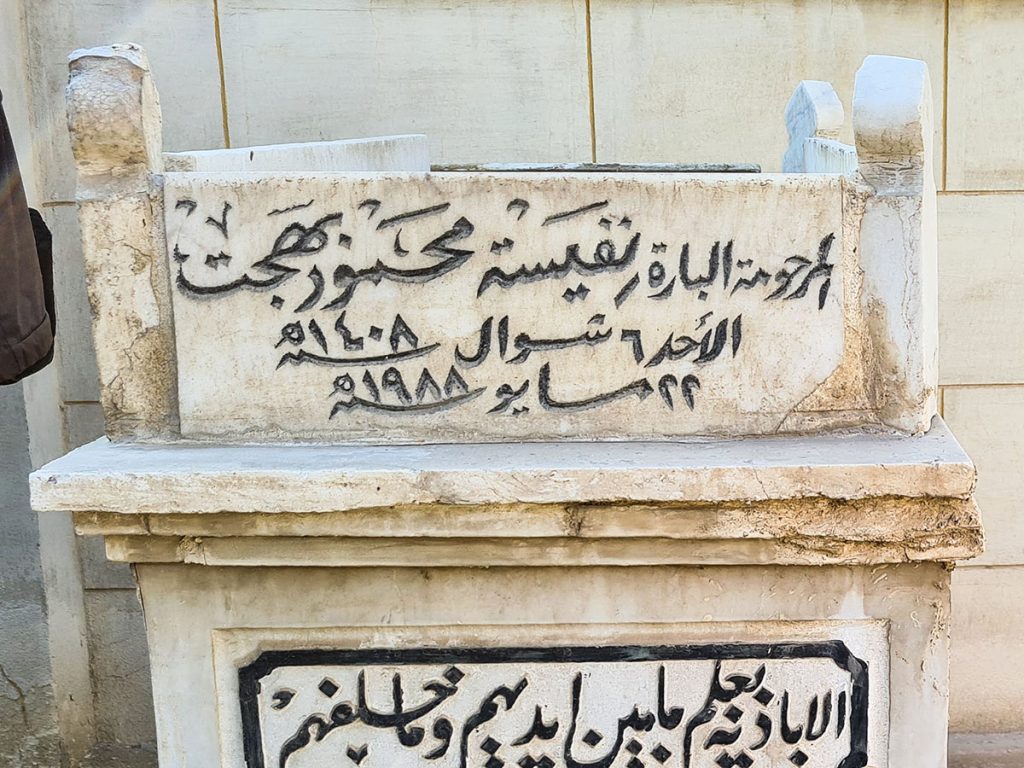 المرحومة البارة نفيسة محمود بهجت
الأحد ٦ شوال سنة ١٤٠٨ه
٢٢ مايو سنة ١٩٨٨م
الا باذنه يعلم ما بين ايديهم وما خلفهم